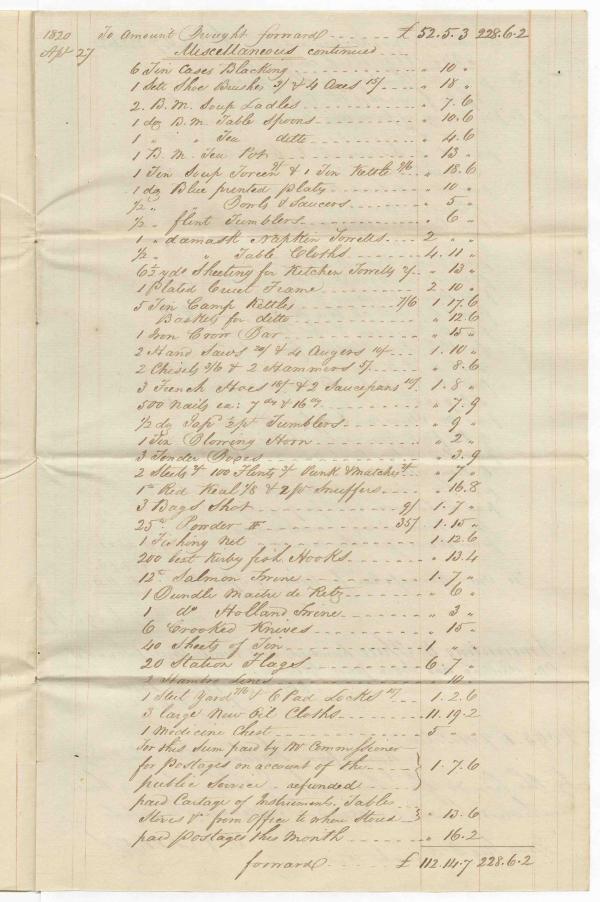 1820 To Amount Brought forward £ 52.5.3 228.6.2
Apl 27 Miscellaneous continued
6 Tin Cases Blacking " 10 "
1 Sett Shoe Brushes 3/ & 4 Axes 15/ " 18 "
2 B.M. Soup Ladles " 7.6
1 dz B.M. Table Spoons " 10.6
1 " " Tea ditto " 4.6
1 B.M. Tea Pot " 13 "
1 Tin Soup Toreen 9/ & 1 Tin Kettle 9/6 " 18.6
1 dz Blue printed plates " 10 "
1/2 " " Bowls & Saucers " 5 "
1/2 " flint Tumblers " 6 "
1 " damask Napkin Towells 2 " "
1/2 " " Table Cloths 4.11 "
6 1/2 yds Sheeting for Kitchen Towells 2/ " 13 "
1 Plated Cruet Frame 2.10 "
5 Tin Camp Kettles 7/6 1.17.6
Baskets for ditto " 12.6
1 Iron Crow Bar " 15 "
2 Hand Saws 20/ & 4 Augers 10/ 1.10 "
2 Chisels 3/6 & 2 Hammers 5/ " 8.6
3 Trench Hoes 18/ & 2 Saucepans 10/ 1.8 "
500 Nails ea: 7 dy & 16 dy " 7.9
1/2 dz Jap'd 1/2 pt Tumblers " 9 "
1 Tin Blowing Horn " 2 "
3 Tender Boxes " 3.9
2 Steels & 100 Flints & Punk & Matches " 7 "
1 Red Keal 1/8 & 2 pr Snuffers " 16.8
3 Bags Shot 9/ 1.7 "
25 Powder F 35/ 1.15 "
1 Fishing Net 1.12.6
200 best Kirby fish Hooks " 13.4
12 Salmon Twine 1.7 "
1 Bundle Maitre de Retz " 6 "
1 do Holland Twine " 3 "
6 Crooked Knives " 15 "
40 Sheets of Tin 1 " "
20 Station Flags 6.7 "
2 Hambro Lines " 10 "
1 Steel Yard 7/6 & 6 Pad Locks 1.2.6
3 large New Oil Cloths 11.19.2
1 Medicine Chest 5 "
For this Sum paid by Mr Commissioner
for Postages on account of the 1.7.6
public Service - refunded
paid Cartage of Instruments, Table
Stores &c from Office to where Stored " 13.6
paid Postages this Month " 16.2
forward £ 112.14.7 228.6.2